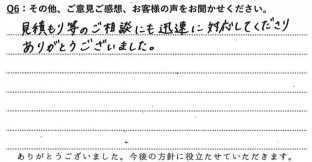 Q6：その他、ご意見ご感想、お客様の声をお聞かせください。
見積もり等のご相談にも迅速に対応してくださり
ありがとうございました。
ありがとうございました。今後の方針に役立たせていただきます。